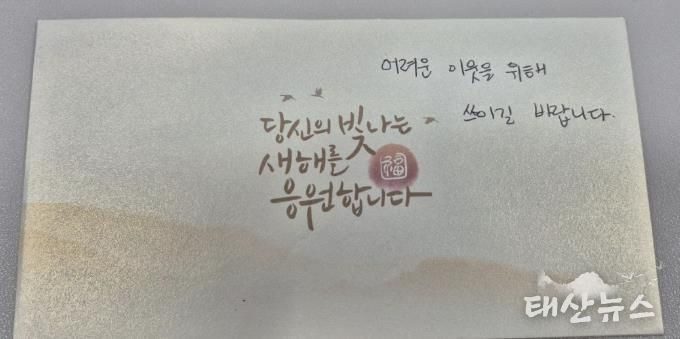 어려운 이웃을 위해
쓰이길 바랍니다.
당신의 빛나는
새해를
福
응원합니다
태산뉴스